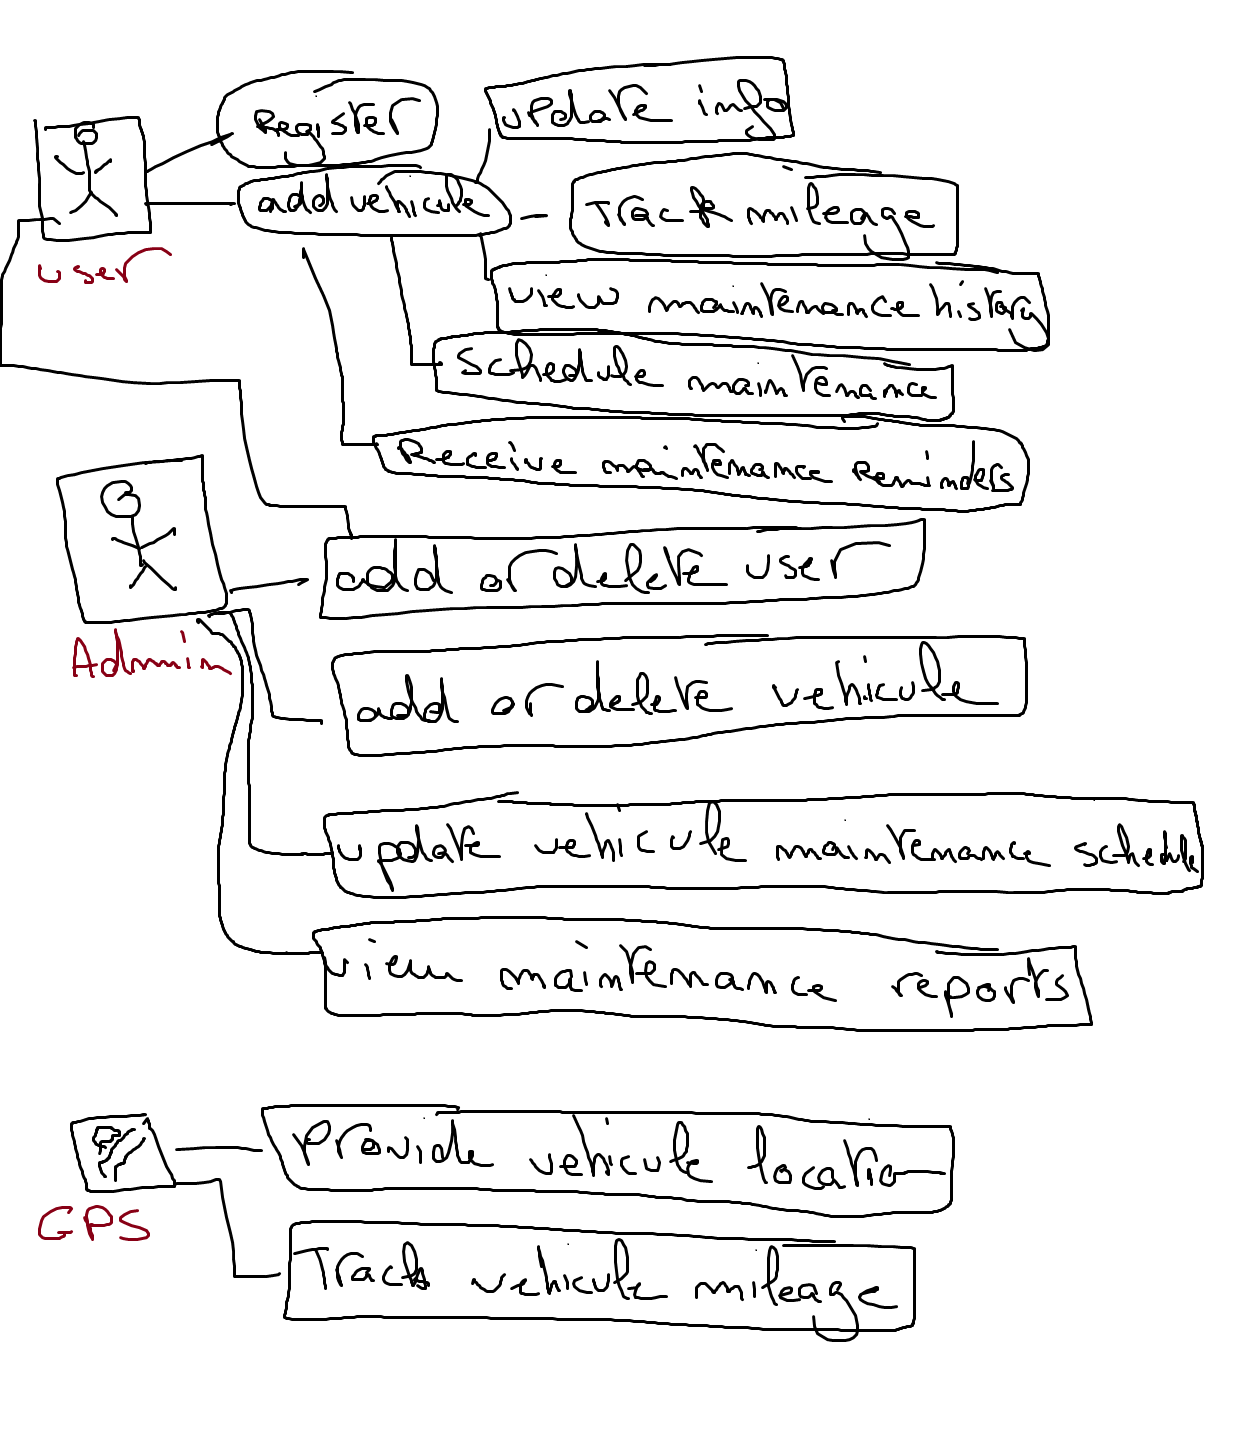 Register
update info
add vehicule
Track mileage
user
view maintenance history
Schedule maintenance
Receive maintenance Reminders
add or delete user
Admin
add or delete vehicule
update vehicule maintenance schedule
view maintenance reports
Provide vehicule location
GPS
Track vehicule mileage